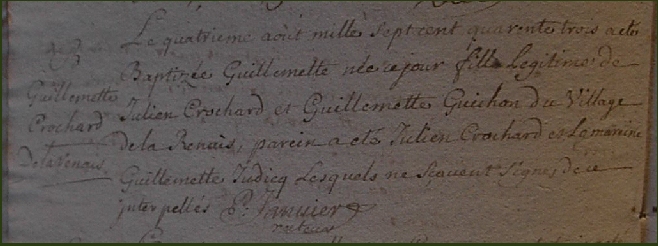 Le quatrieme aout mille sept cent quarente trois a ete
Baptizée Guillemette née ce jour fille Legitime de
Guillemette
Julien Crochard et Guillemette Guichon du Village
Crochard
de la Renais, parein a eté Julien Crochard et La mareine
De la Renais.
Guillemette Judicq Lesquels ne scavent signe, de ce
interpellés P. Janvier
recteur